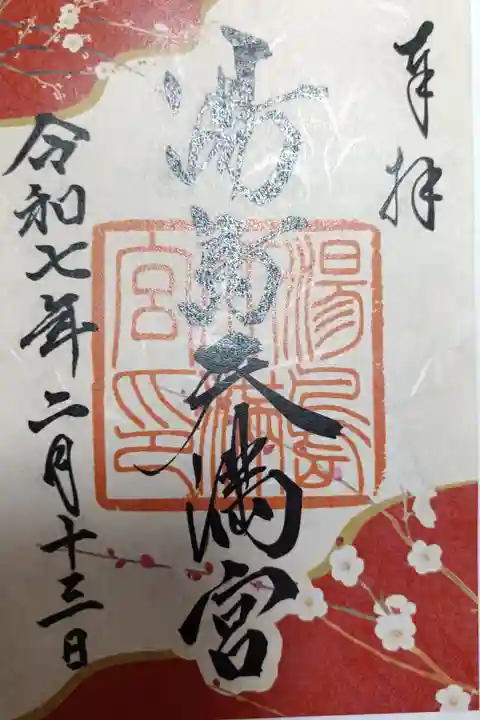 奉拝
湯島天満宮
湯島天満宮印
令和七年二月十三日